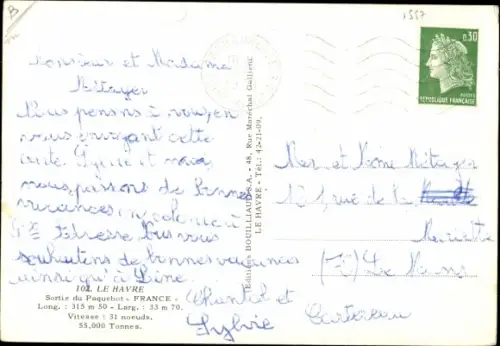 B
1557
Monsieur et Madame
Métayer
Nous pensons à vous, en
vous envoyant cette
carte. Sylvie et moi
nous passons de bonnes
vacances, en colonie à
Ste Adresse. Nous vous
souhaitons de bonnes vacances
ainsi qu'à Line.
Chantal et
Sylvie
102. LE HAVRE
Sortie du Paquebot « FRANCE »
Long. : 315 m 50 - Larg. : 33 m 70.
Vitesse : 31 noeuds.
55,000 Tonnes.
Editions BOUILLIAUD S.A. - 48, Rue Maréchal Galliéni
LE HAVRE - Tél. : 42-21-09.
0,30
POSTES
REPUBLIQUE FRANÇAISE
Mr et Mme Métayer
rue de la
(72) Le Mans